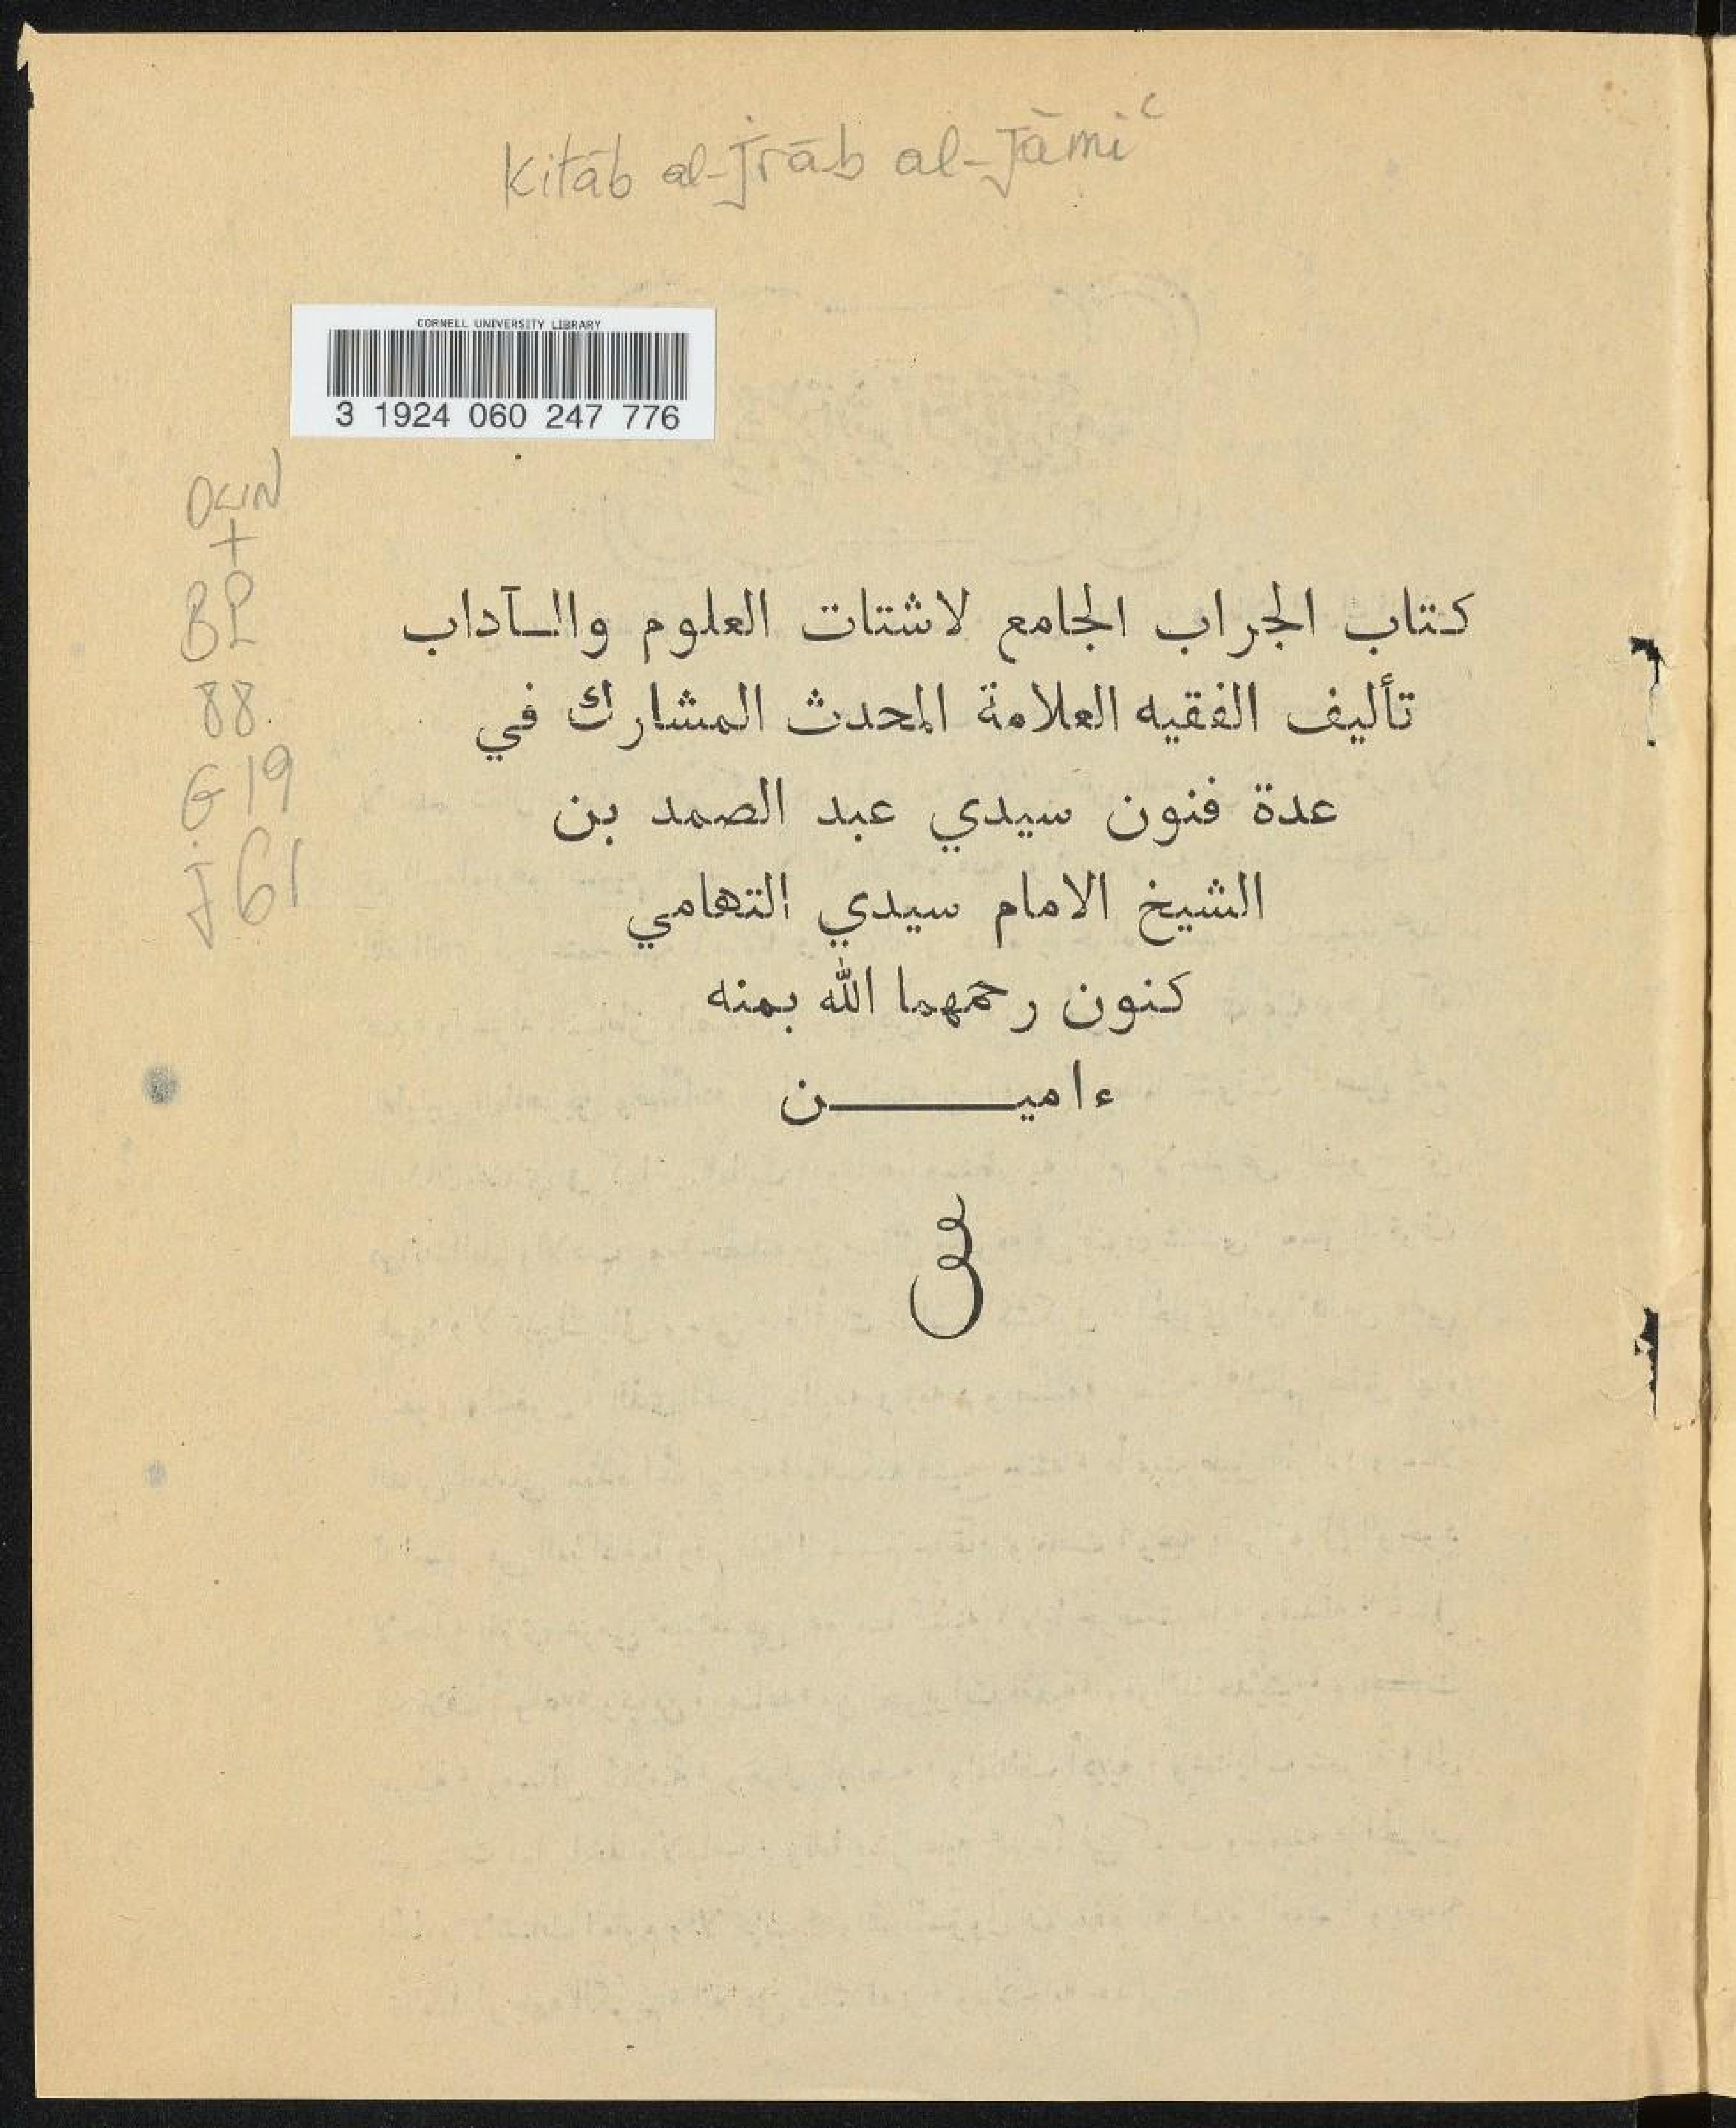 Kitāb al-Jrāb al-Jāmiʿ
CORNELL UNIVERSITY LIBRARY
3 1924 060 247 776
OLIN
+
BP
88
G19
J61
كتاب الجراب الجامع لاشتات العلوم والـآداب
تأليف الفقيه العلامة المحدث المشارك في
عدة فنون سيدي عبد الصمد بن
الشيخ الامام سيدي التهامي
كنون رحمهما الله بمنه
ءاميـــــن